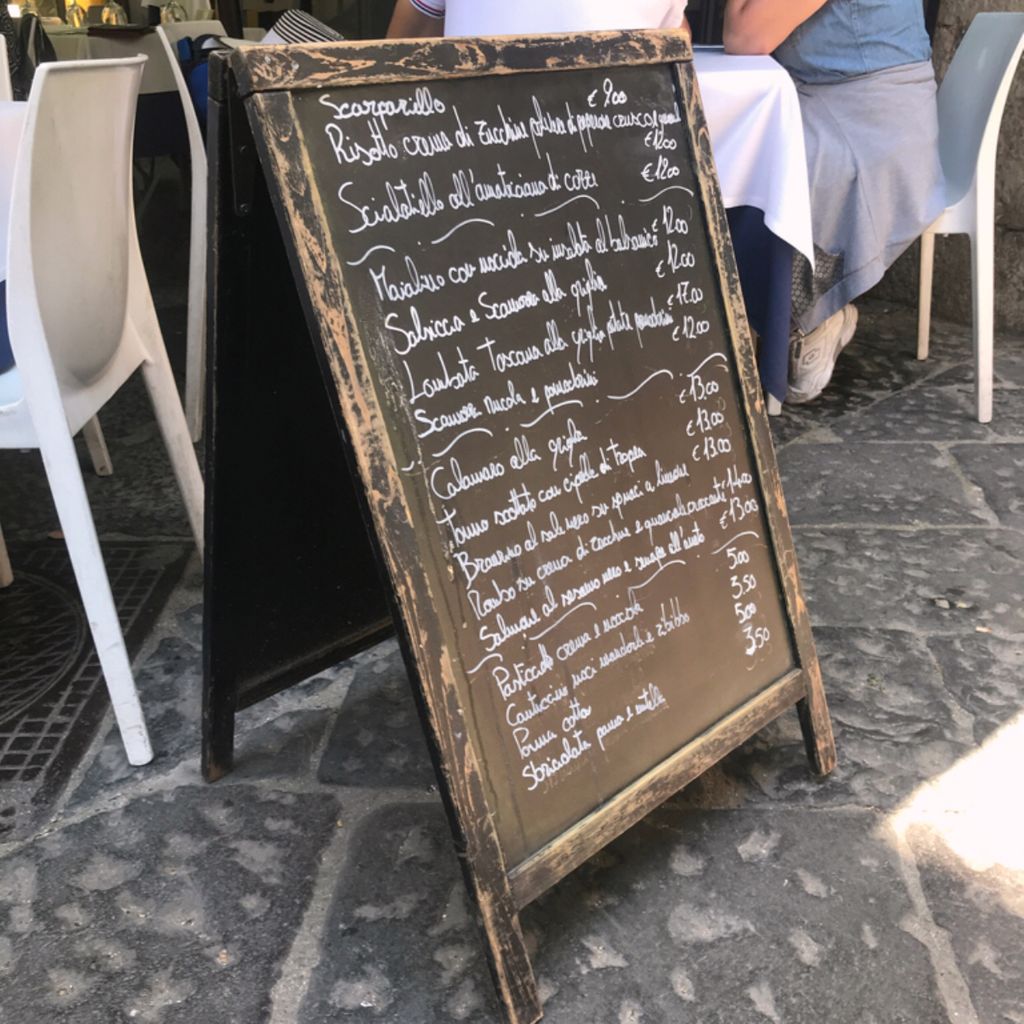 Scarpariello € 9.00
Risotto crema di zucchine polvere di peperone crusco € 12.00
Scialatiello all'amatriciana di cozze € 12.00
Maialino con nocciola su insalata al balsamico € 12.00
Salsiccia e Scamorza alla griglia € 12.00
Lombata Toscana alla griglia patate pomodorini € 17.00
Scamorza rucola e pomodorini € 12.00
Calamaro alla griglia € 13.00
Tonno scottato con cipolle di tropea € 13.00
Branzino al sale nero su spinaci a limone € 13.00
Rombo su crema di zucchine e guanciale croccante € 14.00
Salmone al sesamo nero e senape all'aneto € 13.00
Pasticcotto crema e nocciola 5.00
Cantuccini noci mandorle e zibibbo 3.50
Panna cotta 5.00
Sbriciolata panna e nutella 3.50